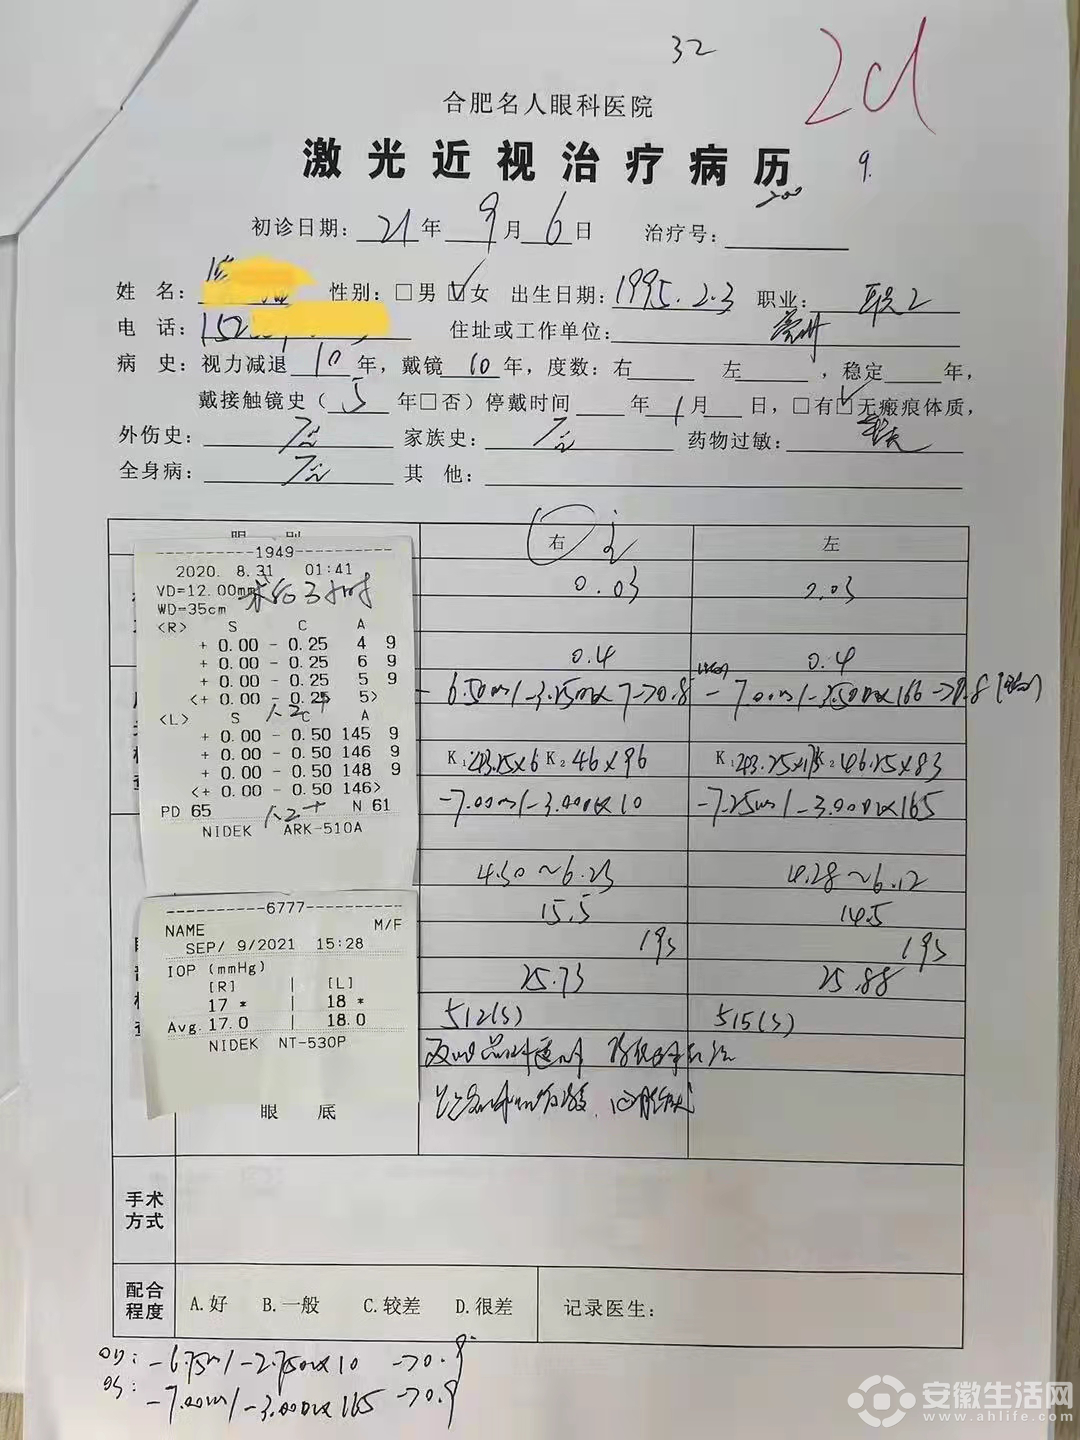 32
2cl
合肥名人眼科医院
激光近视治疗病历
9.
初诊日期: 21 年 9 月 6 日 治疗号:
姓 名: 性别: □男 □女 出生日期: 1995.2.3 职业:
电 话: 152 住址或工作单位:
病 史: 视力减退 10 年, 戴镜 10 年, 度数: 右 左 , 稳定 年,
戴接触镜史( 5 年□否) 停戴时间 年 1 月 日, □有 □无瘢痕体质,
外伤史: 无 家族史: 无 药物过敏:
全身病: 无 其 他:
眼 别 右 左
0.03 0.03
0.4 0.4
-6.50DS/-3.25DC×7→0.8 -7.00DS/-3.50DC×166→0.8
K₁43.25×6 K₂46×96 K₁43.25×173 K₂46.25×83
-7.00DS/-3.00DC×10 -7.25DS/-3.00DC×165
4.30~6.23 4.28~6.12
15.5 14.5
19s 19s
25.73 25.88
512(s) 515(s)
-----------1949-----------
2020. 8.31 01:41
VD=12.00mm 术后3小时
WD=35cm
<R> S C A
+ 0.00 - 0.25 4 9
+ 0.00 - 0.25 6 9
+ 0.00 - 0.25 5 9
<+ 0.00 - 0.25 5>
<L> S C A
+ 0.00 - 0.50 145 9
+ 0.00 - 0.50 146 9
+ 0.00 - 0.50 148 9
<+ 0.00 - 0.50 146>
PD 65 1.2+ N 61
NIDEK ARK-510A
-----------6777-----------
NAME M/F
SEP/ 9/2021 15:28
IOP (mmHg)
[R] | [L]
17 * | 18 *
Avg. 17.0 | 18.0
NIDEK NT-530P
眼 底
手术方式
配合程度 A.好 B.一般 C.较差 D.很差 记录医生:
OD: -6.75DS/-2.75DC×10 →0.9
OS: -7.00DS/-3.00DC×165 →0.9
安徽生活网
www.ahlife.com